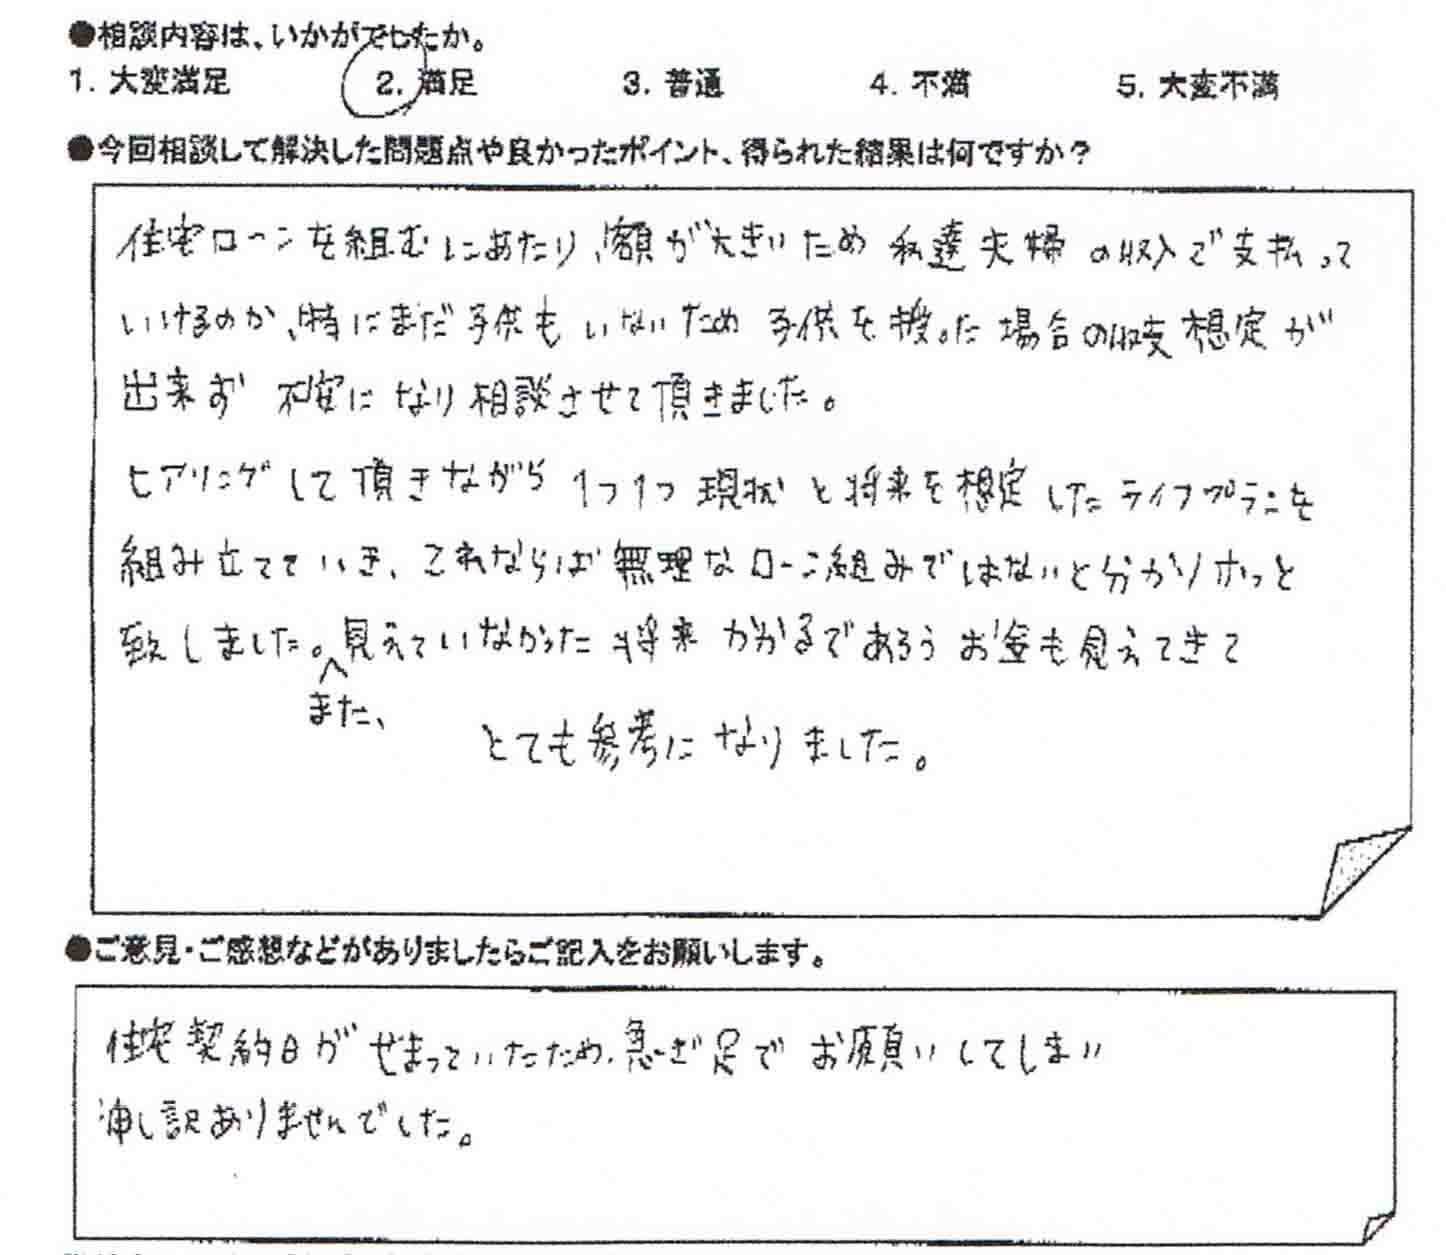 ●相談内容は、いかがでしたか。
1. 大変満足 2. 満足 3. 普通 4. 不満 5. 大変不満
●今回相談して解決した問題点や良かったポイント、得られた結果は何ですか？
住宅ローンを組むにあたり、額が大きいため 私達夫婦の収入で支払って
いけるのか、特にまだ子供もいないため 子供を授った場合の収支想定が
出来ず 不安になり相談させて頂きました。
ヒアリングして頂きながら 1つ1つ 現状と将来を想定したライフプランを
組み立てていき、これならば無理なローン組みではないと分かりホっと
致しました。見えていなかった将来 かかるであろうお金も見えてきて
また、
とても参考になりました。
●ご意見・ご感想などがありましたらご記入をお願いします。
住宅契約日がせまっていたため、急ぎ足でお願いしてしまい
申し訳ありませんでした。